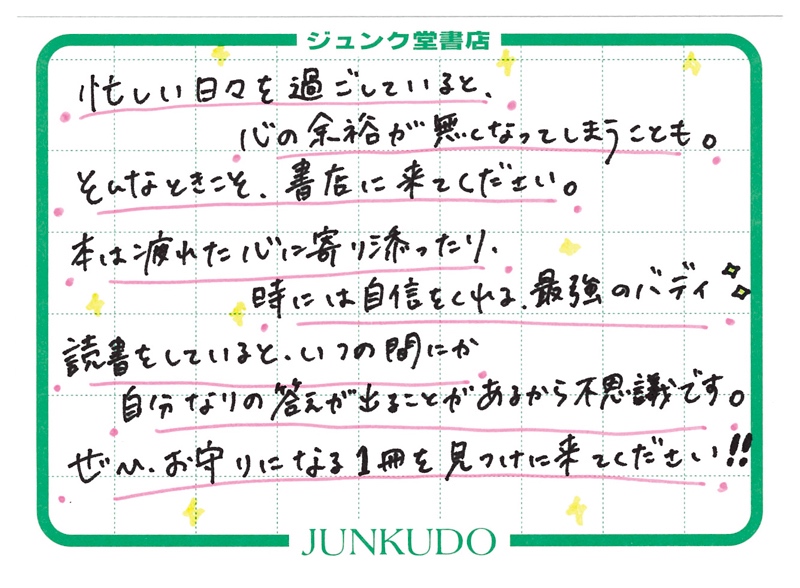 ジュンク堂書店
忙しい日々を過ごしていると、
心の余裕が無くなってしまうことも。
そんなときこそ、書店に来てください。
本は疲れた心に寄り添ったり、
時には自信をくれる、最強のバディ
読書をしていると、いつの間にか
自分なりの答えが出ることがあるから不思議です。
ぜひ、お守りになる1冊を見つけに来てください!!
JUNKUDO